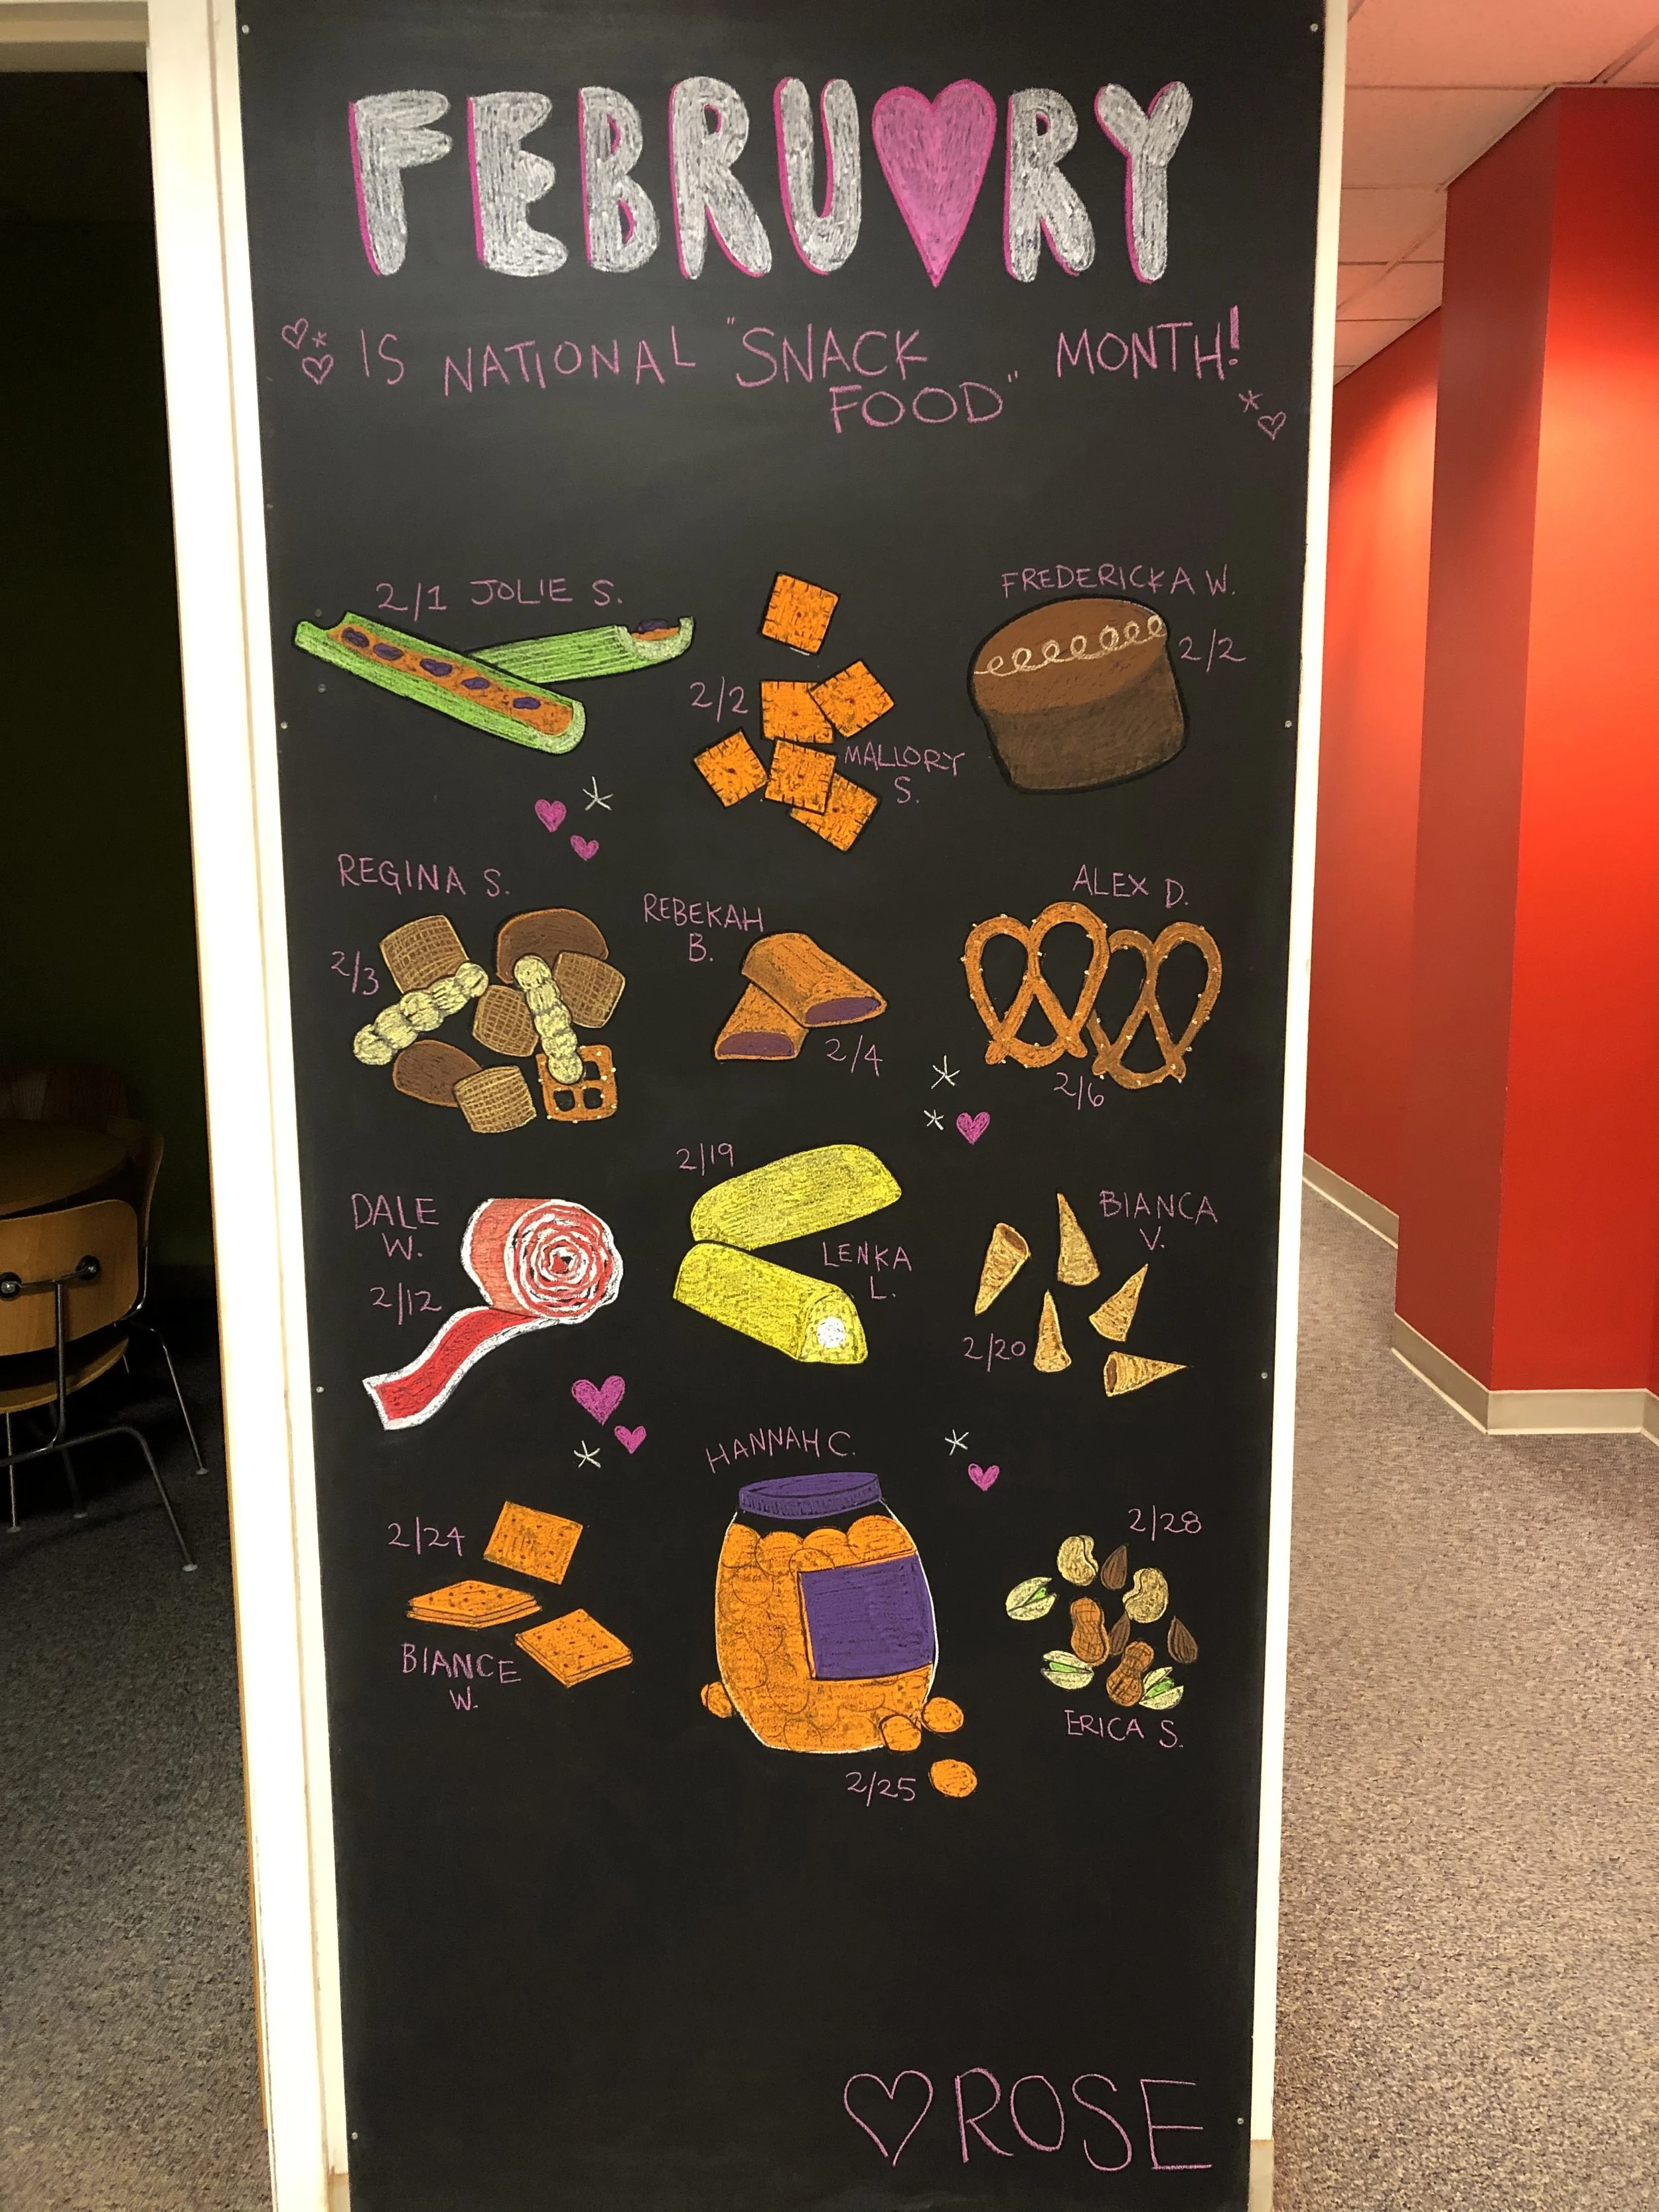 FEBRU♥RY
IS NATIONAL "SNACK FOOD" MONTH!
2/1 JOLIE S.
2/2
MALLORY
S.
FREDERICKA W.
2/2
REGINA S.
2/3
REBEKAH
B.
2/4
ALEX D.
2/6
DALE
W.
2/12
2/19
LENKA
L.
BIANCA
V.
2/20
2/24
BIANCE
W.
HANNAH C.
2/25
2/28
ERICA S.
♡ ROSE